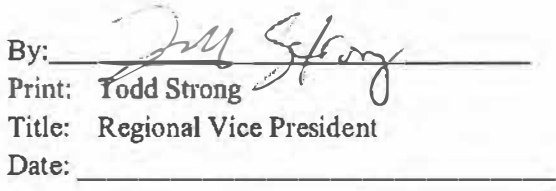 By: Todd Strong
Print: Todd Strong
Title: Regional Vice President
Date: